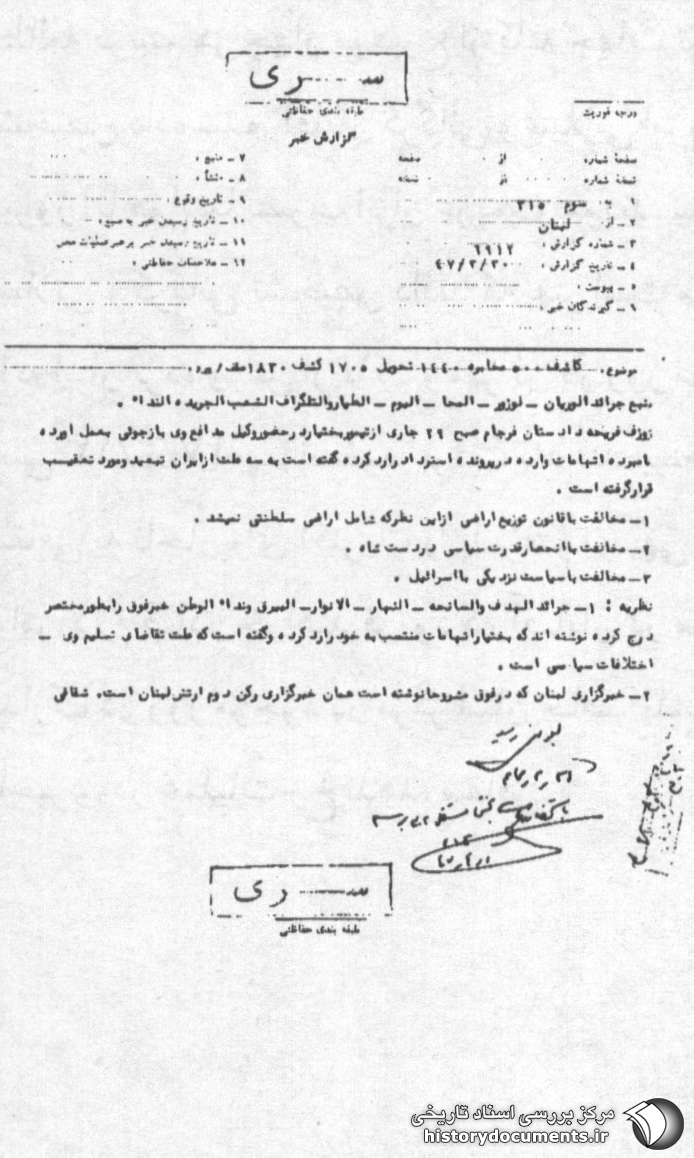 سری
طبقه بندی حفاظتی
درجه فوریت
گزارش خبر
صفحه شماره از صفحه
نسخه شماره از نسخه
۱ ـ به سوم ۳۱۵
۲ ـ از لبنان
۳ ـ شماره گزارش ، ۶۹۱۲
۴ ـ تاریخ گزارش ، ۴۷/۲/۳۰
۵ ـ پیوست ،
۶ ـ گیرندگان خبر ،
۷ ـ منبع ،
۸ ـ منشأ ،
۹ ـ تاریخ وقوع ،
۱۰ ـ تاریخ رسیدن خبر به منبع ،
۱۱ ـ تاریخ رسیدن خبر برهبر عملیات محل
۱۲ ـ ملاحظات حفاظتی ،
موضوع، کاشف ۵۰۰ مخابره ۱۴۴۰ تحویل ۱۷۰۵ کشف ۱۸۳۰
منبع جرائد الوریان ـ لوژور ـ المحا ـ الیوم ـ الطیار والتلگراف الشعب الجریده النداء .
ژوزف فریحه دادستان فرجام صبح ۲۹ جاری ازتیموربختیارد رحضوروکیل مدافع وی بازجوئی بعمل اورده
نامبرده اتهامات وارده درپرونده استرداد رارد کرده گفته است به سه علت ازایران تبعید ومورد تعقیب
قرارگرفته است .
۱ ـ مخالفت باقانون توزیع اراضی ازاین نظرکه شامل اراضی سلطنتی نمیشد .
۲ ـ مخالفت باانحصارقدرت سیاسی در دست شاه .
۳ ـ مخالفت باسیاست نزدیکی بااسرائیل .
نظریه : ۱ ـ جرائد الهدف والسانحه ـ النهار ـ الانوار ـ البیرق ونداء الوطن خبرفوق رابطورمختصر
درج کرده نوشته اند که بختیاراتهامات منتسب به خود رارد کرده وگفته است که علت تقاضای تسلیم وی ـ
اختلافات سیاسی است .
۲ ـ خبرگزاری لبنان که درفوق مشروحانوشته است همان خبرگزاری رکن دوم ارتش لبنان است. شقاقی
سری
طبقه بندی حفاظتی
مرکز بررسی اسناد تاریخی
historydocuments.ir